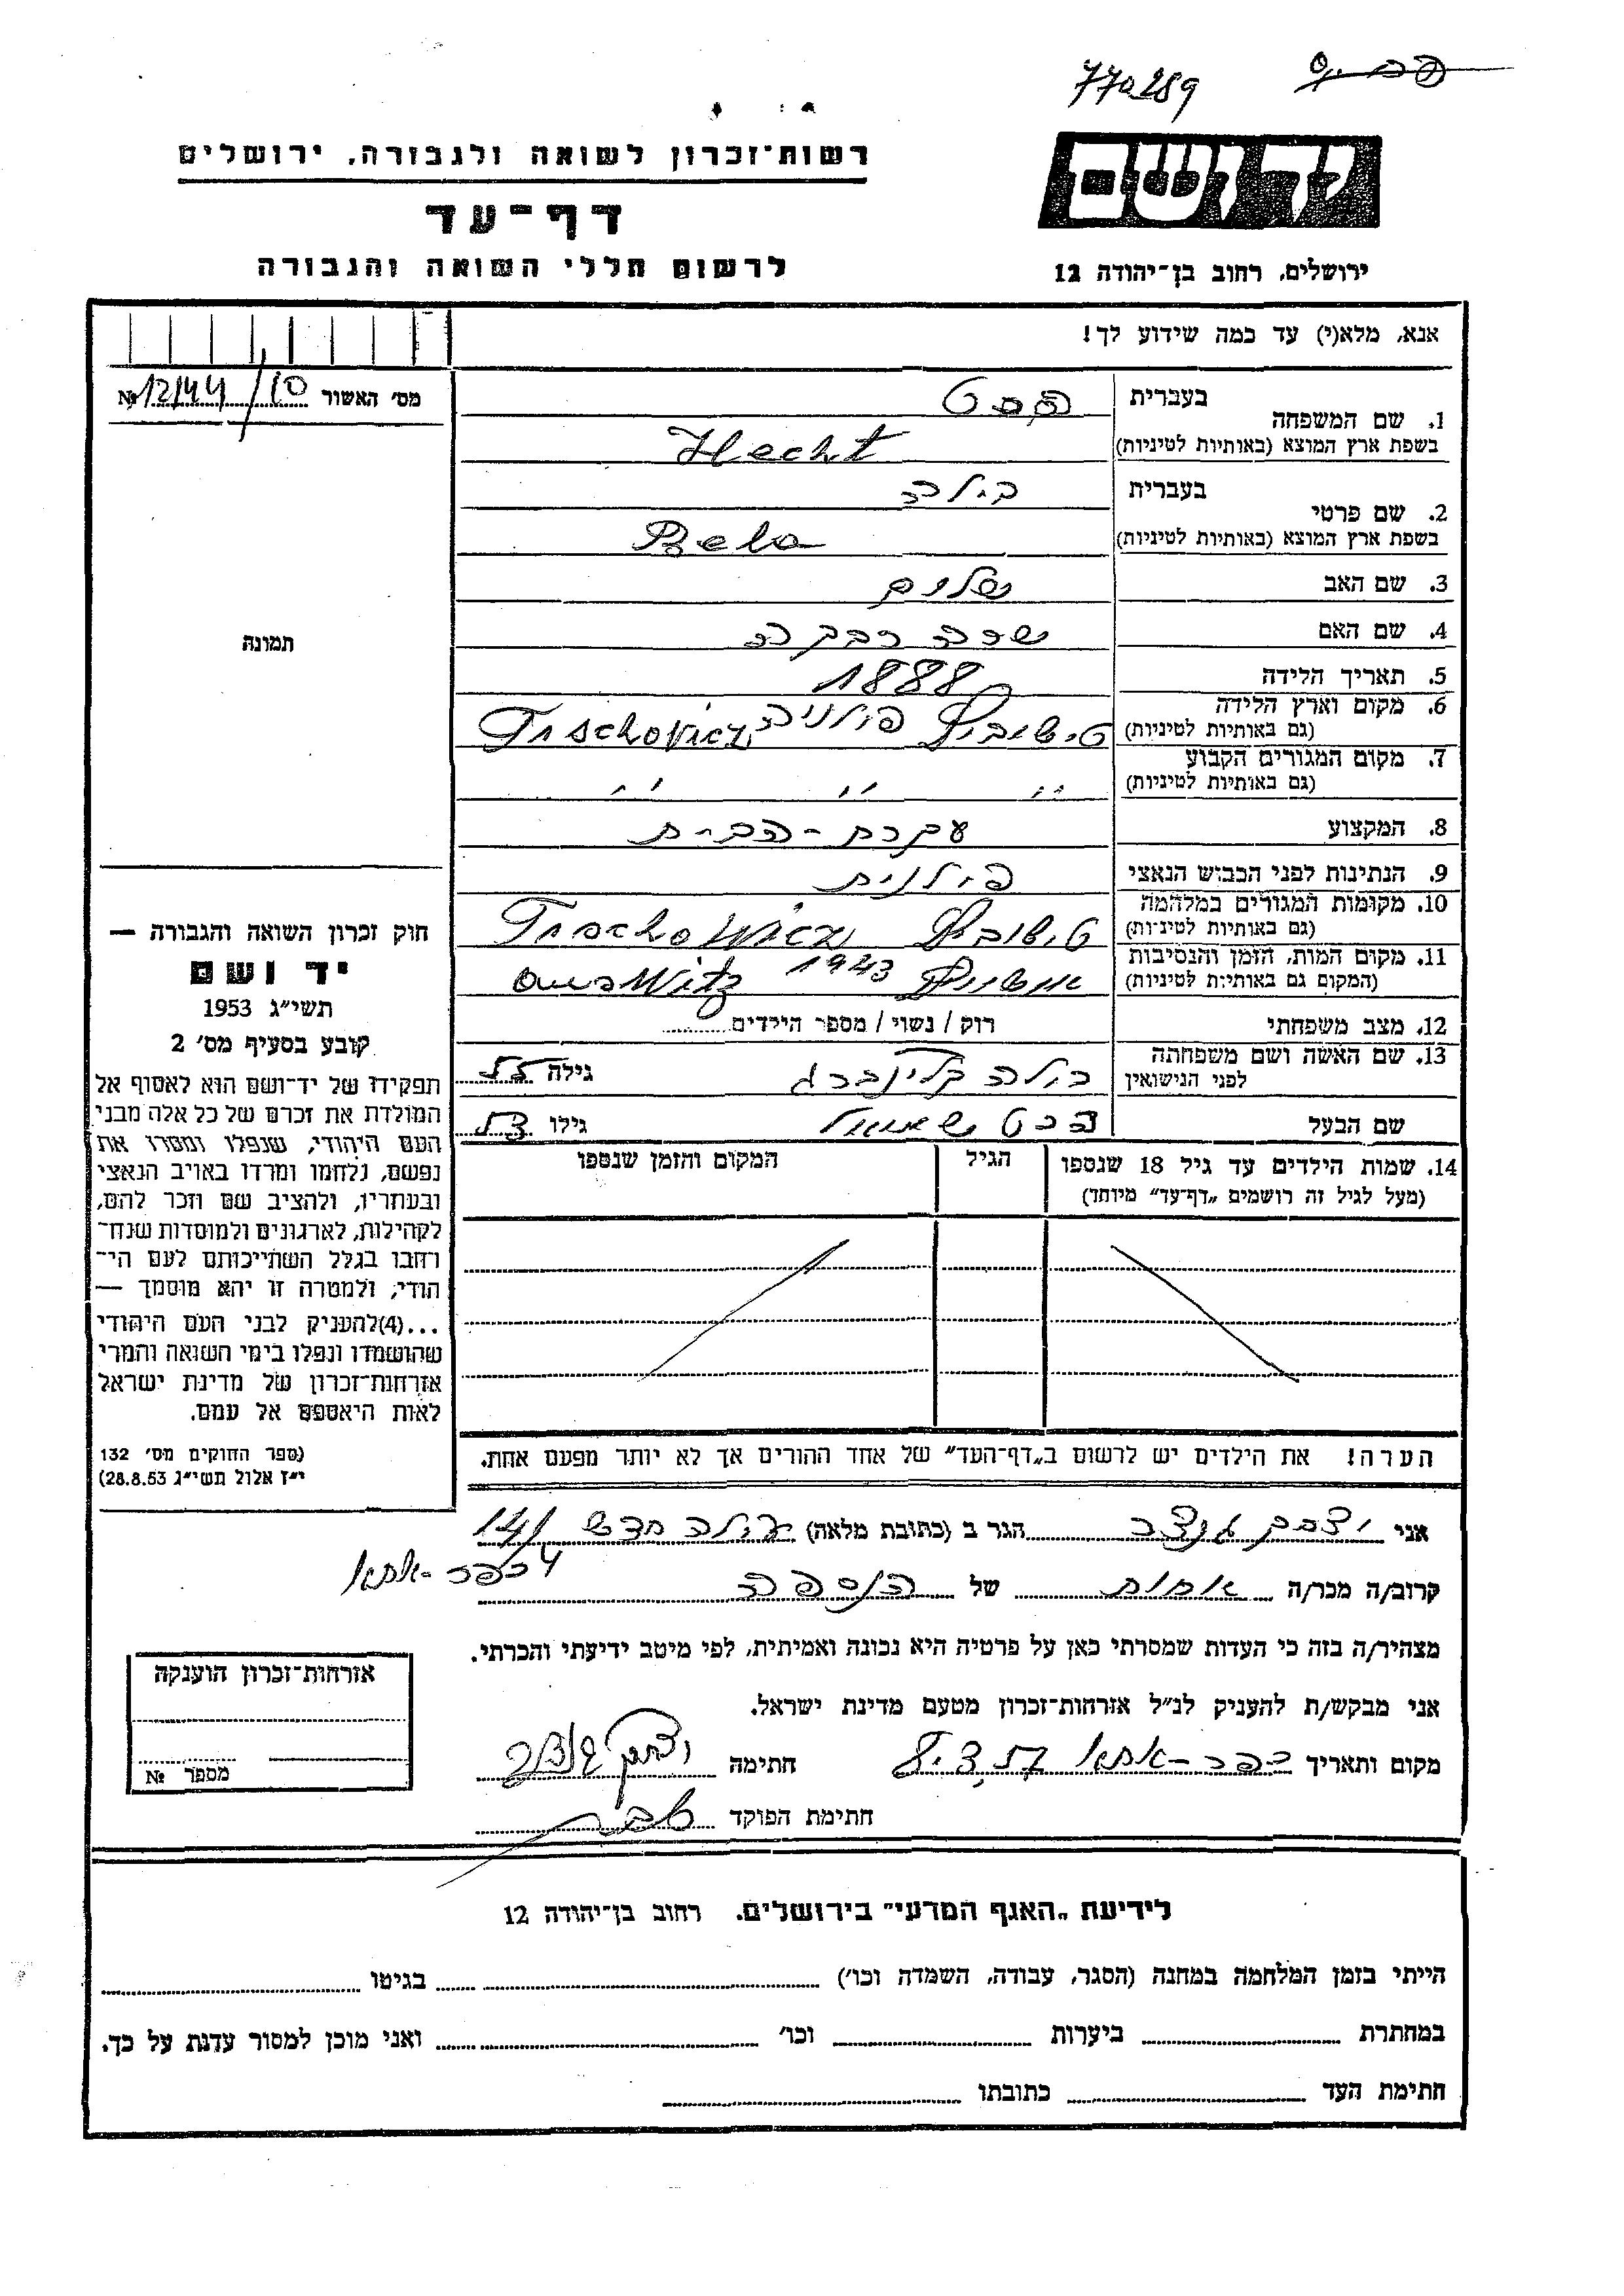 770289
רשות־זכרון לשואה ולגבורה, ירושלים
יד ושם
דף־עד
לרשום חללי השואה והגבורה
ירושלים, רחוב בן־יהודה 12
אנא, מלא(י) עד כמה שידוע לך!
מס׳ האשור № 12144/10
1. שם המשפחה בעברית הכט
בשפת ארץ המוצא (באותיות לטיניות) Hecht
2. שם פרטי בעברית בילה
בשפת ארץ המוצא (באותיות לטיניות) Bela
3. שם האב שלום
4. שם האם שרה רבקה
תמונה
5. תאריך הלידה 1888
6. מקום וארץ הלידה (גם באותיות לטיניות) טישוביץ פולניה Tischovicz
7. מקום המגורים הקבוע (גם באותיות לטיניות) ״ ״ ״
8. המקצוע עקרת-הבית
9. הנתינות לפני הכבוש הנאצי פולנית
10. מקומות המגורים במלחמה (גם באותיות לטיניות) טישוביץ Tischowicz
11. מקום המות, הזמן והנסיבות (המקום גם באותיות לטיניות) אושויץ 1943
12. מצב משפחתי רוק / נשוי / מספר הילדים
13. שם האשה ושם משפחתה לפני הנישואין בילה קליינברג גילה
שם הבעל הכט שמואל גילו
14. שמות הילדים עד גיל 18 שנספו הגיל המקום והזמן שנספו
(מעל לגיל זה רושמים „דף־עד״ מיוחד)
הערה! את הילדים יש לרשום ב„דף־העד״ של אחד ההורים אך לא יותר מפעם אחת.
חוק זכרון השואה והגבורה —
יד ושם
תשי״ג 1953
קובע בסעיף מס׳ 2
תפקידו של יד־ושם הוא לאסוף אל
המולדת את זכרם של כל אלה מבני
העם היהודי, שנפלו ומסרו את
נפשם, נלחמו ומרדו באויב הנאצי
ובעוזריו, ולהציב שם וזכר להם,
לקהילות, לארגונים ולמוסדות שנח־
רחבו בגלל השתייכותם לעם הי־
הודי, ולמטרה זו יהא מוסמך —
...(4)להעניק לבני העם היהודי
שהושמדו ונפלו בימי השואה והמרי
אזרחות־זכרון של מדינת ישראל
לאות היאספם אל עמם.
(ספר החוקים מס׳ 132
י״ז אלול תשי״ג 28.8.53)
אני הגר ב (כתובת מלאה) חדש
כפר-אתא
קרוב/ה מכר/ה אחות של הנספה
מצהיר/ה בזה כי העדות שמסרתי כאן על פרטיה היא נכונה ואמיתית, לפי מיטב ידיעתי והכרתי.
אני מבקש/ת להעניק לנ״ל אזרחות־זכרון מטעם מדינת ישראל.
מקום ותאריך כפר-אתא חתימה
חתימת הפוקד
אזרחות־זכרון הוענקה
מספר №
לידיעת „האגף המדעי״ בירושלים, רחוב בן־יהודה 12
הייתי בזמן המלחמה במחנה (הסגר, עבודה, השמדה וכו׳) בגיטו
במחתרת ביערות וכו׳ ואני מוכן למסור עדות על כך.
חתימת העד כתובתו